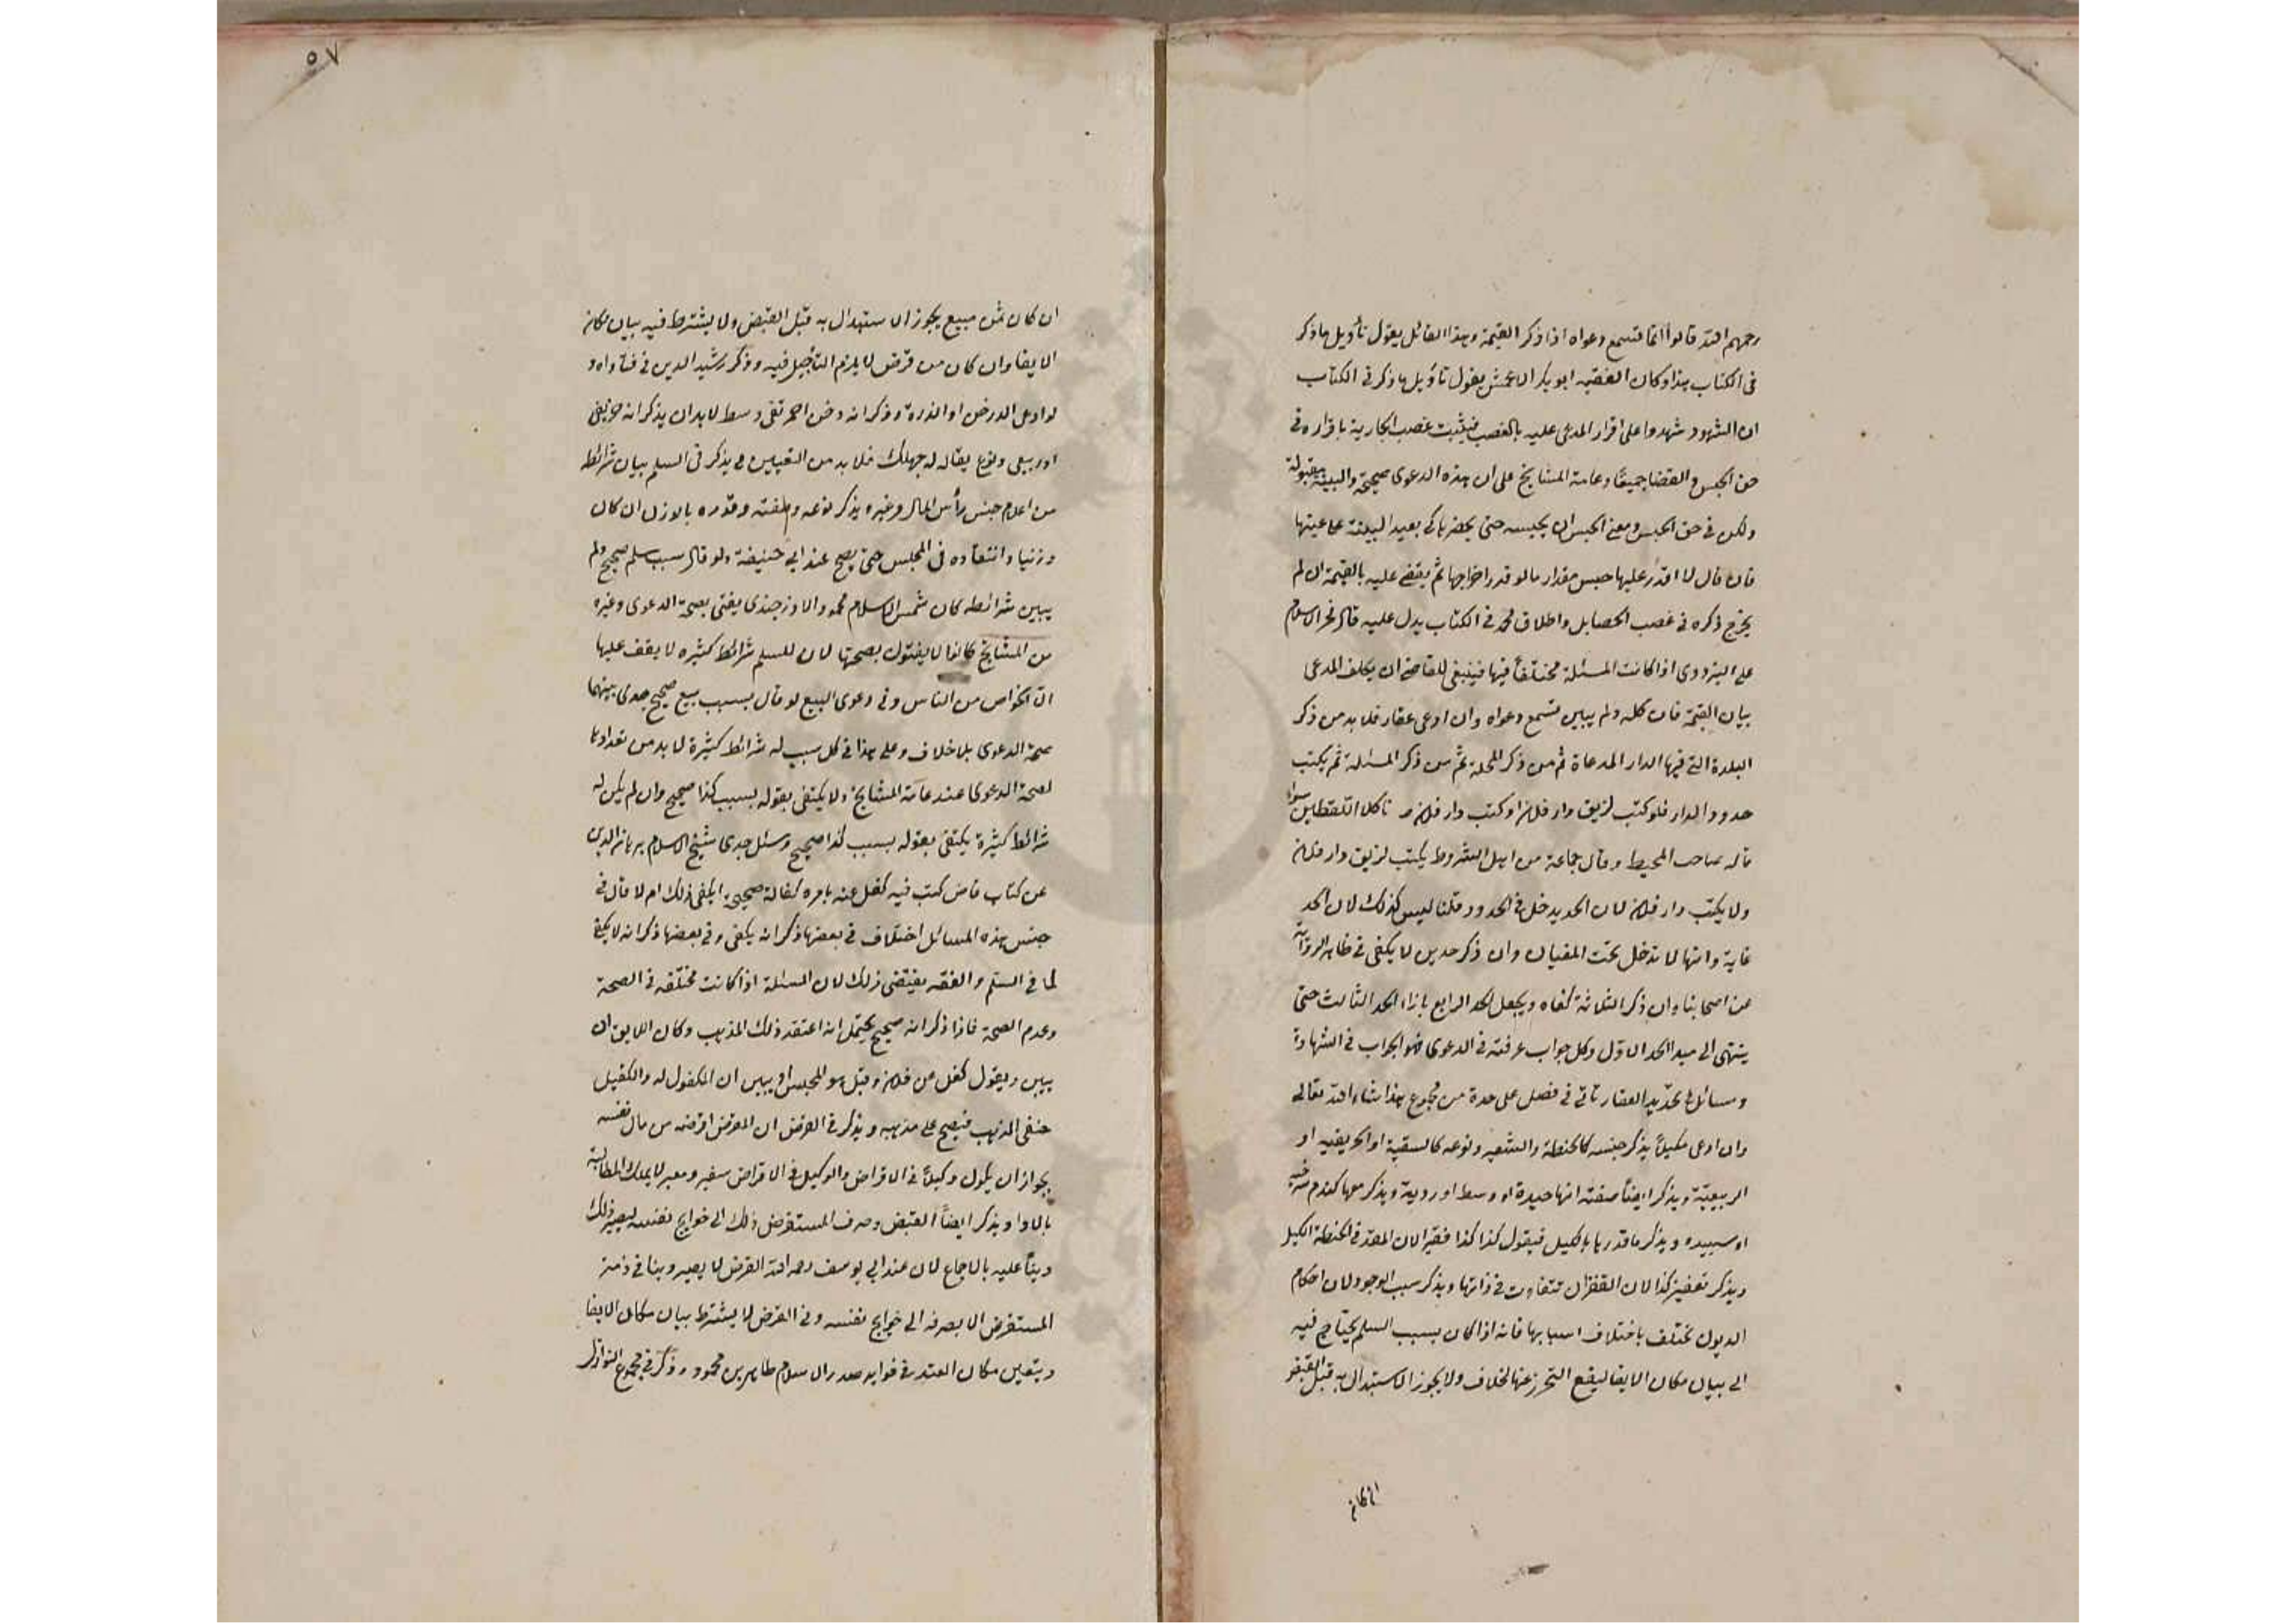 رحمهم الله قالوا انما تسمع دعواه اذا ذكر القيمة وهذا القائل يقول تأويل ما ذكر
فى الكتاب هذا وكان الفقيه ابو بكر الاعمش يقول تأويل ما ذكر فى الكتاب
ان الشهود شهدوا على اقرار المدعى عليه بالغصب فيثبت غصب الجارية باقراره فى
حق الحبس والقضا جميعًا وعامة المشايخ على ان هذه الدعوى صحيحة والبينة مقبولة
ولكن فى حق الحبس ومعنى الحبس ان يحبسه حتى يحضرها كى بعيد البينة على عينها
فان قال لا اقدر عليها حبس مقدار ما لو قدر اخراجها ثم يقضى عليه بالقيمة ان لم
يخرج ذكره فى غصب الحصايل واطلاق محمد فى الكتاب يدل عليه قال فخر الاسلام
على البزدوى اذا كانت المسئلة مختلفًا فيها فينبغى للقاضى ان يكلف المدعى
بيان القيمة فان كلفه ولم يبين تسمع دعواه وان ادعى عقار فلا بد من ذكر
البلدة التى فيها الدار المدعاة ثم من ذكر المحلة ثم من ذكر المسئلة ثم يكتب
حدود الدار فلو كتب لزيق دار فلان او كتب دار فلان كلا اللفظين سواء
قاله صاحب المحيط وقال جماعة من اهل الشروط يكتب لزيق دار فلان
ولا يكتب دار فلان لان الحد يدخل فى الحدود قلنا ليس كذلك لان الحد
غاية وانها لا تدخل تحت المغيان وان ذكر حدين لا يكفى فى ظاهر الرواية
عن اصحابنا وان ذكر الثلاثة كفاه ويجعل الحد الرابع بازاء الحد الثالث حتى
ينتهى الى مبدا الحد الاول وكل جواب عرفته فى الدعوى فهو الجواب فى الشهادة
ومسائل تحديد العقار تأتى فى فصل على حدة من مجموع هذا شاء الله تعالى
وان ادعى مكيلاً يذكر جنسه كالحنطة والشعير ونوعه كالسقية او الخريفيه او
الربيعية ويذكر ايضًا صفته انها جيدة او وسط او ردية ويذكر معها كندم سرخه
او سبيده ويذكر ما قدرها بالكيل فيقول كذا كذا قفيزا لان المقدر فى الحنطة الكيل
ويذكر بقفيز كذا لان القفزان تتفاوت فى ذاتها ويذكر سبب الوجود لان احكام
الديون تختلف باختلاف اسبابها فانه اذا كان بسبب السلم يحتاج فيه
الى بيان مكان الايفا ليقع التحرز عن الخلاف ولا يجوز الاستبدال به قبل القبض
ان كان
٥٧
ان كان ثمن مبيع يجوز الاستبدال به قبل القبض ولا يشترط فيه بيان مكان
الايفا وان كان من قرض لا يلزم التأجيل فيه وذكر رشيد الدين فى فتاواه و
لو ادعى الدخن او الذرة وذكر انه دخن احمر نقى وسط لا بد ان يذكر انه خريفى
او ربيعى ونوع يقال له جهلك فلا بد من التعيين ويذكر فى السلم بيان شرائطه
من اعلام جنس رأس المال وغيره يذكر نوعه وصفته وقدره بالوزن ان كان
وزنيا وانتقاده فى المجلس حتى يصح عند ابى حنيفة ولو قال سبب سلم صحيح ولم
يبين شرائطه كان شمس الاسلام محمود الاوزجندى يفتى بصحة الدعوى وغيره
من المشايخ كانوا لا يفتون بصحتها لان للسلم شرائط كثيره لا يقف عليها
الا الخواص من الناس وفى دعوى البيع لو قال بسبب بيع صحيح جرى بينهما
صحة الدعوى بلا خلاف وعلى هذا فى كل سبب له شرائط كثيرة لا بد من تعدادها
لصحة الدعوى عند عامة المشايخ ولا يكتفى بقوله بسبب كذا صحيح وان لم يكن له
شرائط كثيرة يكتفى بقوله بسبب كذا صحيح وسئل جدى شيخ الاسلام برهان الدين
عن كتاب قاض كتب فيه كفل عنه بامره كفالة صحيحة ايكفى ذلك ام لا قال فى
جنس هذه المسائل اختلاف فى بعضها ذكر انه يكفى وفى بعضها ذكر انه لا يكفى
لما فى السلم والفقه يقتضى ذلك لان المسئلة اذا كانت مختلفه فى الصحة
وعدم الصحة فاذا ذكر انه صحيح يحتمل انه اعتقد ذلك المذهب وكان اللايق ان
يبين ويقول كفل عن فلان وقبل هو المجلس او يبين ان المكفول له والكفيل
حنفى المذهب فيصح على مذهبه ويذكر فى القرض ان المقرض اقرضه من مال نفسه
بجواز ان يكون وكيلاً فى الاقراض والوكيل فى الاقراض سفير ومعبر لا يملك المطالبة
بالاداء ويذكر ايضًا القبض وصرف المستقرض ذلك الى حوايج نفسه ليصير ذلك
دينًا عليه بالاجماع لان عند ابى يوسف رحمه الله القرض لا يصير دينا فى ذمة
المستقرض الا بصرفه الى حوايج نفسه وفى القرض لا يشترط بيان مكان الايفا
ويتعين مكان العقد فى فوايد صدر الاسلام طاهر بن محمود وذكر فى مجموع النوازل